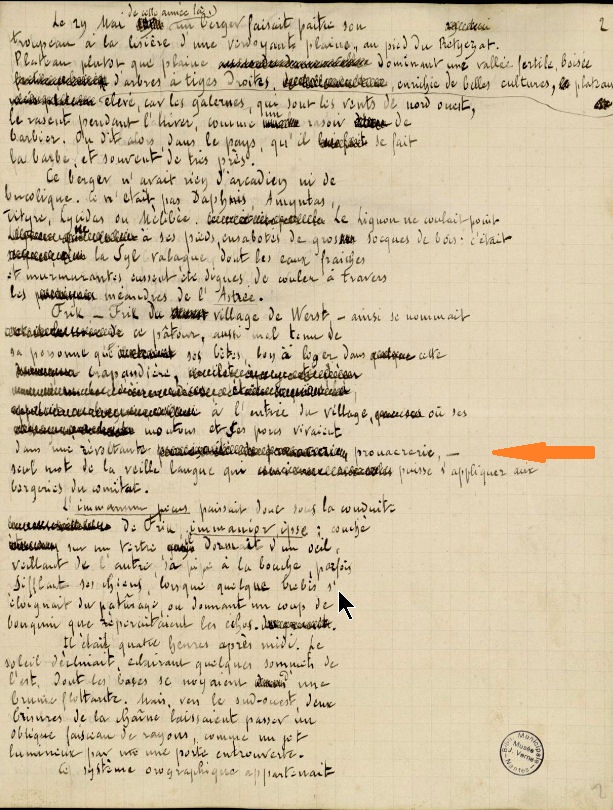 de cette année là,
Le 29 Mai un berger faisait paître son 2
troupeau à la lisière d'une verdoyante plaine, au pied du Retyezat.
Plateau plutôt que plaine dominant une vallée fertile, boisée
d'arbres à tiges droites, enrichie de belles cultures, le plateau
élevé, car les galernes, qui sont les vents de nord ouest,
le rasent pendant l'hiver, comme une rasoir de
barbier. On dit alors, dans le pays, qu'il se fait
la barbe, et souvent de très près.
Ce berger n'avait rien d'arcadien ni de
bucolique. Ce n'était pas Daphnis, Amyntas,
Tityre, Lycidas ou Mélibée. Le Lignon ne coulait point
à ses pieds ensabotés de gros socques de bois: c'était
la Syl valaque, dont les eaux fraîches
et murmurantes eussent été dignes de couler à travers
les méandres de l'Astrée.
Frik – Frik du village de Werst – ainsi se nommait
ce pâtour, aussi mal tenu de
sa personne que ses bêtes, bon à loger dans cette
crapaudière,
à l'entrée du village, où ses
moutons et ses porcs vivaient
dans une révoltante prouacrerie, –
seul mot de la vieille langue qui puisse s'appliquer aux
bergeries du comitat.
L'immanum pecus paissait donc sous la conduite
de Frik, immanior ipse; couché
sur un tertre dormait d'un oeil,
veillant de l'autre sa pipe à la bouche, parfois
sifflant ses chiens, lorsque quelque brebis s'
éloignait du pâturage, ou donnant un coup de
bouquin que répercutaient les échos.
Il était quatre heures après midi. Le
soleil déclinait, éclairant quelques sommets de
l'est, dont les bases se noyaient une
brume flottante. Mais, vers le sud-ouest, deux
brisures de la chaîne laissaient passer un
oblique faisceau de rayons, comme un jet
lumineux par une porte entrouverte.
Ce système orographique appartenait
Bibl. Municipale
Musée
J. Verne
Nantes
2